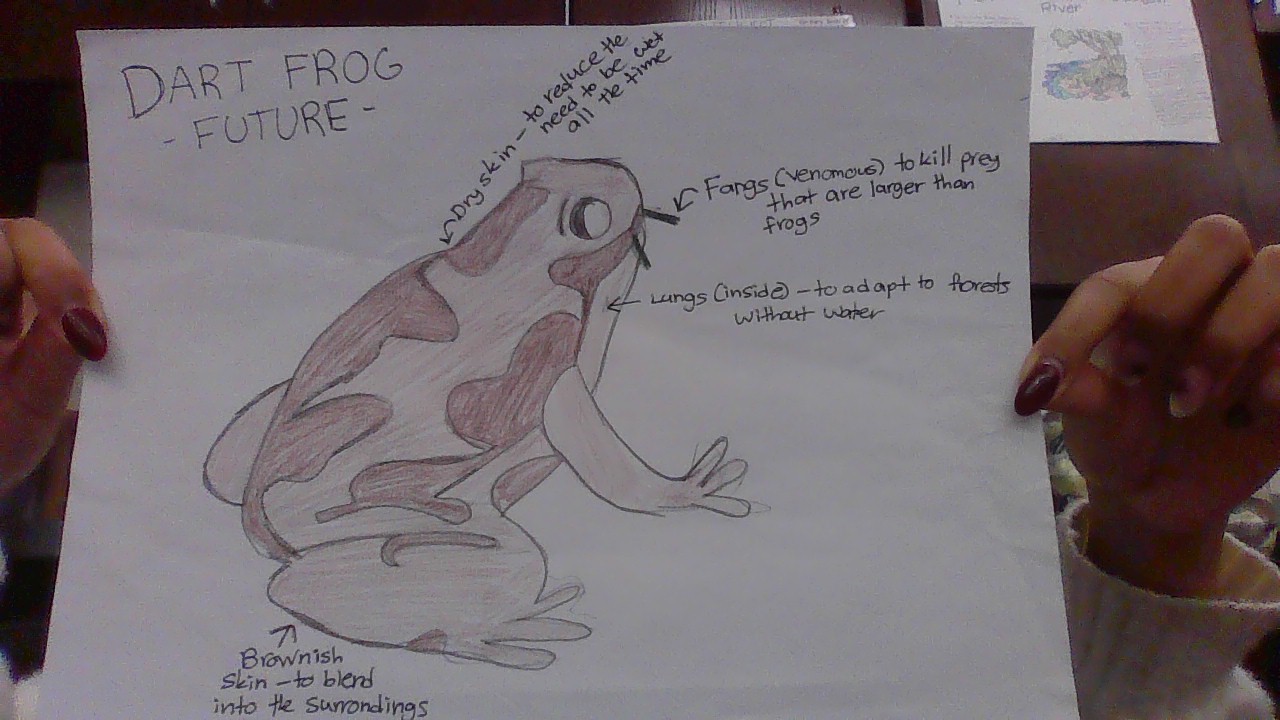 DART FROG
- FUTURE -
Dry skin - to reduce the
need to be wet
all the time
Fangs (venomous) to kill prey
that are larger than
frogs
Lungs (inside) - to adapt to forests
without water
Brownish
skin - to blend
into the surrondings
River